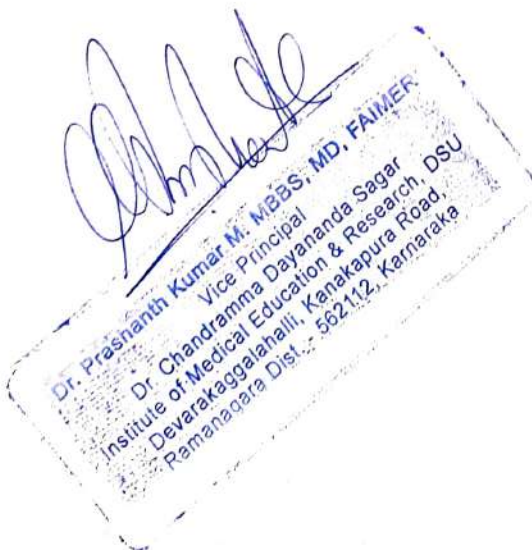 Dr. Prashanth Kumar M. MBBS, MD, FAIMER
Vice Principal
Dr Chandramma Dayananda Sagar
Institute of Medical Education & Research, DSU
Devarakaggalahalli, Kanakapura Road,
Ramanagara Dist.- 562112, Karnaraka